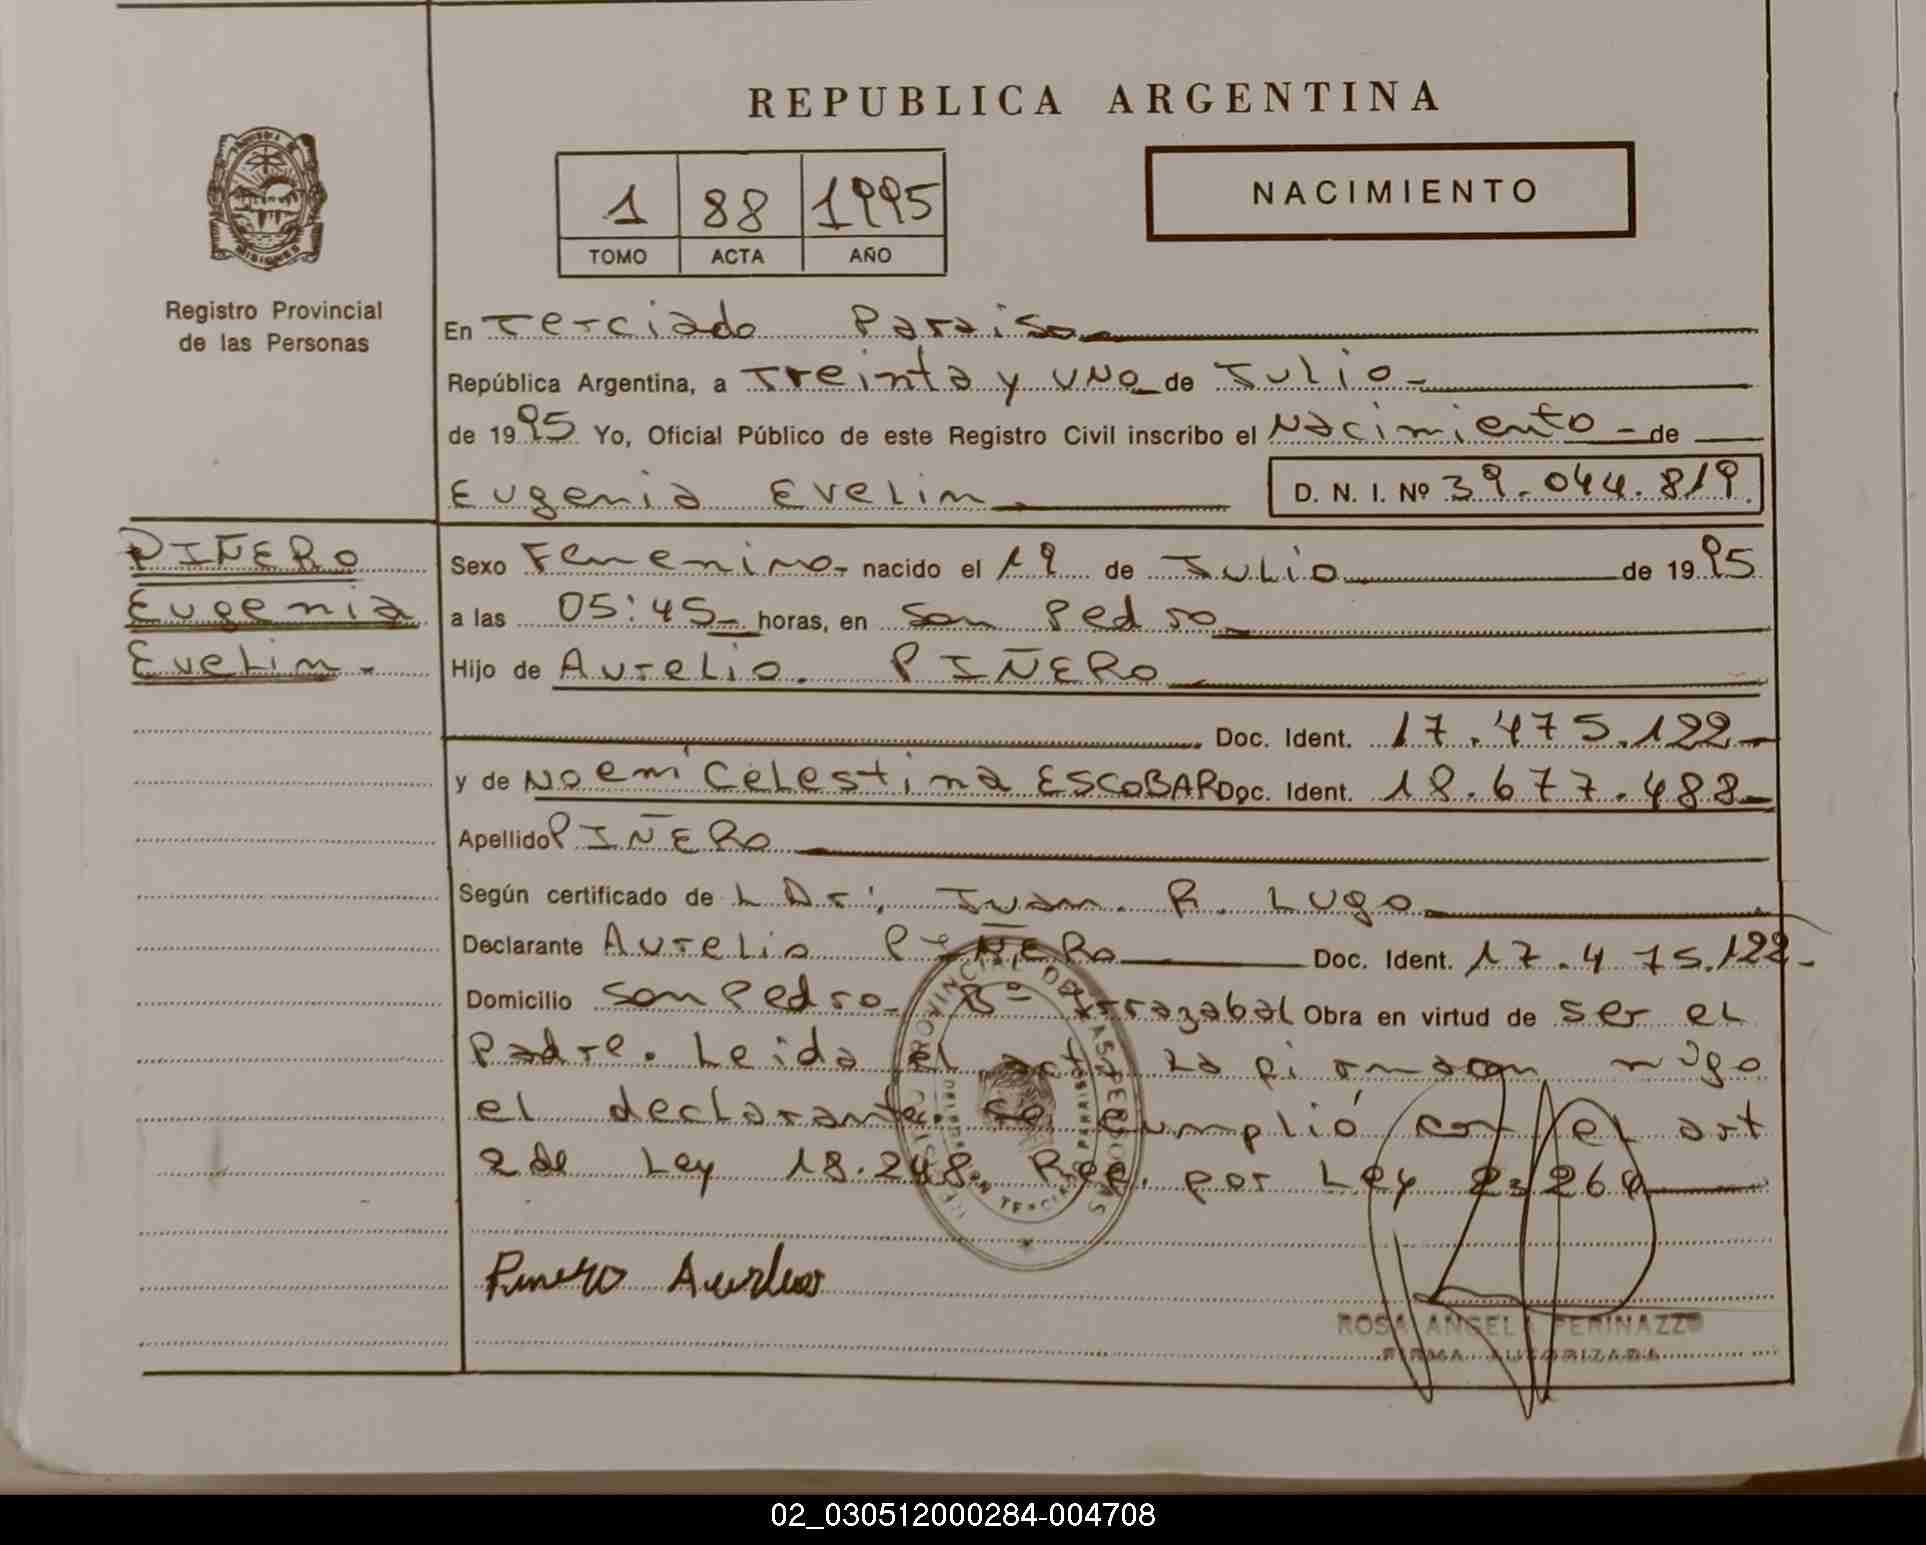 REPUBLICA ARGENTINA
1 88 1995
TOMO ACTA AÑO
NACIMIENTO
MISIONES
Registro Provincial
de las Personas
En Terciado Paraiso
República Argentina, a Treinta y uno de Julio
de 1995 Yo, Oficial Público de este Registro Civil inscribo el Nacimiento - de
Eugenia Evelin D. N. I. Nº 39.044.819.
PIÑERO
Eugenia
Evelin.-
Sexo Femenino- nacido el 19 de Julio de 1995
a las 05:45 horas, en San Pedro
Hijo de Aurelio. PIÑERO
Doc. Ident. 17.475.122-
y de Noemí Celestina ESCOBAR Doc. Ident. 18.677.488-
Apellido PIÑERO
Según certificado de L Dr: Juan. R. Lugo
Declarante Aurelio PIÑERO Doc. Ident. 17.475.122-
Domicilio San Pedro- Bº Irrazabal Obra en virtud de ser el
Padre. Leida el acta la firman
el declarante. Se cumplió con el art
2 de Ley 18.248 Rep. por Ley
REGISTRO PROVINCIAL DE LAS PERSONAS
Piñero Aurelio
ROSA ANGELA PERINAZZO
FIRMA AUTORIZADA
02_030512000284-004708